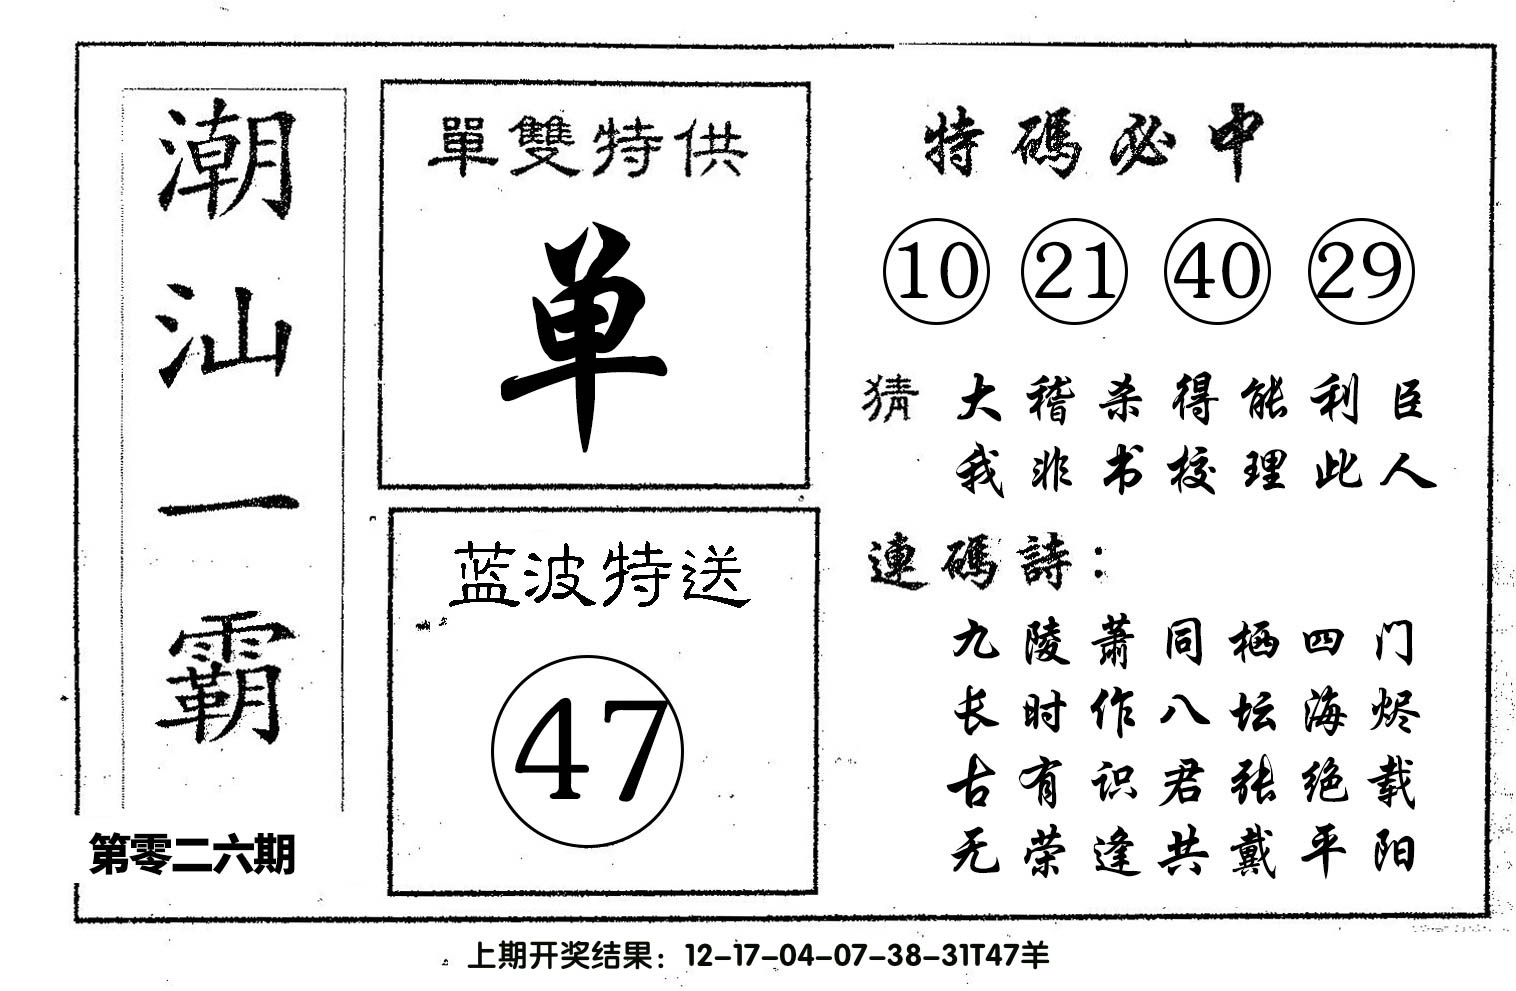 潮汕一霸
第零二六期
單雙特供
单
蓝波特送
47
特碼必中
10 21 40 29
猜 大稽杀得能利臣
我非书校理此人
連碼詩：
九陵蕭同栖四门
长时作八坛海烬
古有识君张绝载
无荣逢共戴平阳
上期开奖结果：12-17-04-07-38-31T47羊